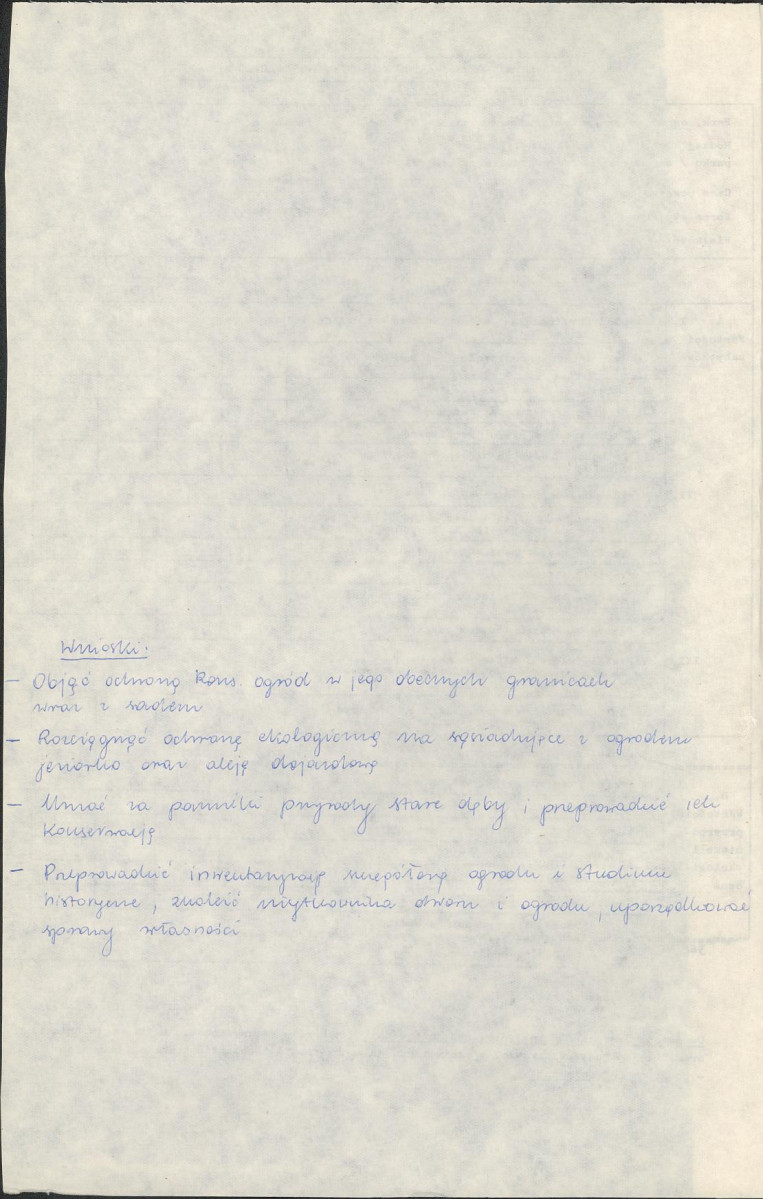 Wnioski.
— Objąć ochroną kons. ogród w jego obecnych granicach
wraz z sadem
— Rozciągnąć ochronę ekologiczną na sąsiadujące z ogrodem
jeziorko oraz aleję dojazdową
— Uznać za pomniki przyrody stare dęby i przeprowadzić ich
konserwację
— Przeprowadzić inwentaryzację szczegółową ogrodu i studium
historyczne, znaleźć użytkownika dworu i ogrodu, uporządkować
sprawy własności